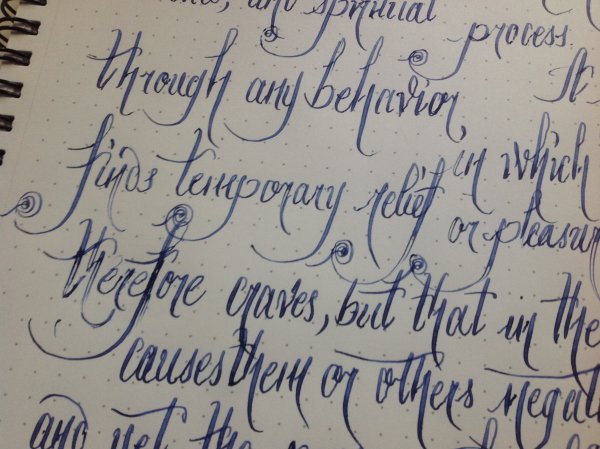 and spiritual process. It
through any behavior, in which
finds temporary relief or pleasur
therefore craves, but that in the
causes them or others negati
and yet the